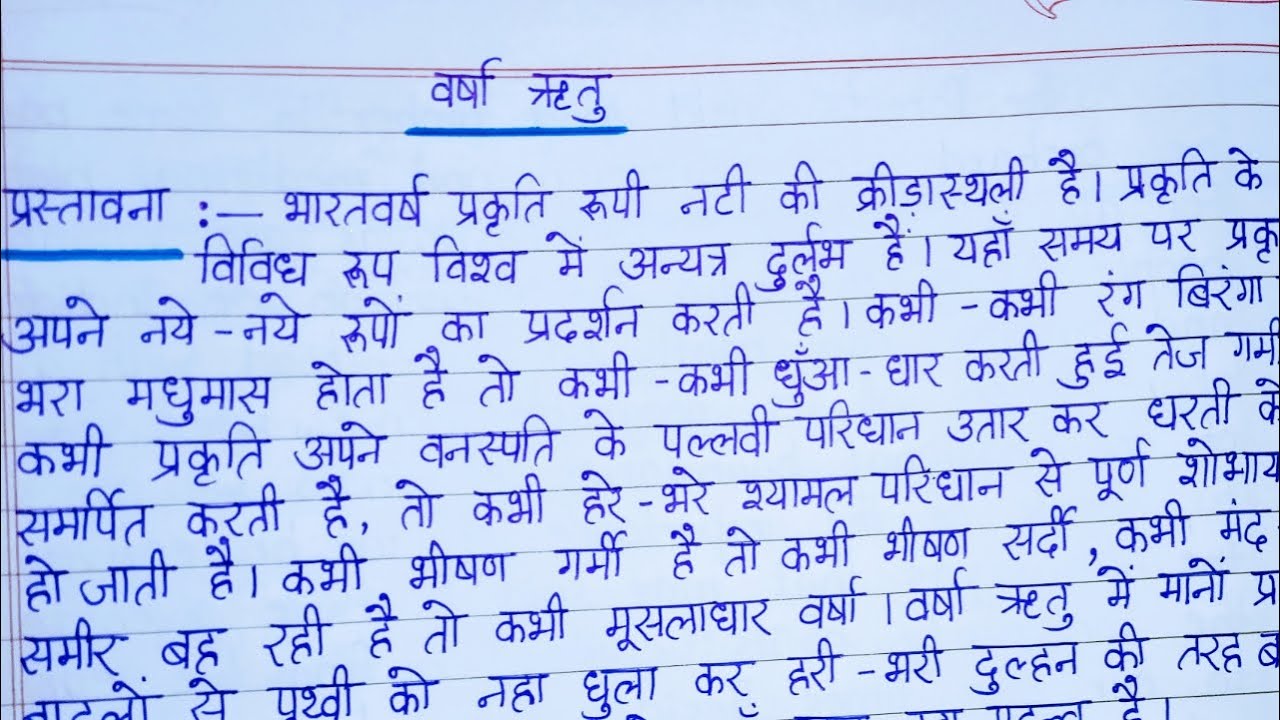 वर्षा ऋतु
प्रस्तावना :— भारतवर्ष प्रकृति रूपी नटी की क्रीड़ास्थली है। प्रकृति के
विविध रूप विश्व में अन्यत्र दुर्लभ हैं। यहाँ समय पर प्रकृ
अपने नये - नये रूपों का प्रदर्शन करती है। कभी - कभी रंग बिरंगा
भरा मधुमास होता है तो कभी - कभी धुँआ - धार करती हुई तेज गर्मी
कभी प्रकृति अपने वनस्पति के पल्लवी परिधान उतार कर धरती के
समर्पित करती है, तो कभी हरे - भरे श्यामल परिधान से पूर्ण शोभाय
हो जाती है। कभी भीषण गर्मी है तो कभी भीषण सर्दी, कभी मंद
समीर बह रही है तो कभी मूसलाधार वर्षा । वर्षा ऋतु में मानों प्र
से पृथ्वी को नहा धुला कर हरी - भरी दुल्हन की तरह ब
है।